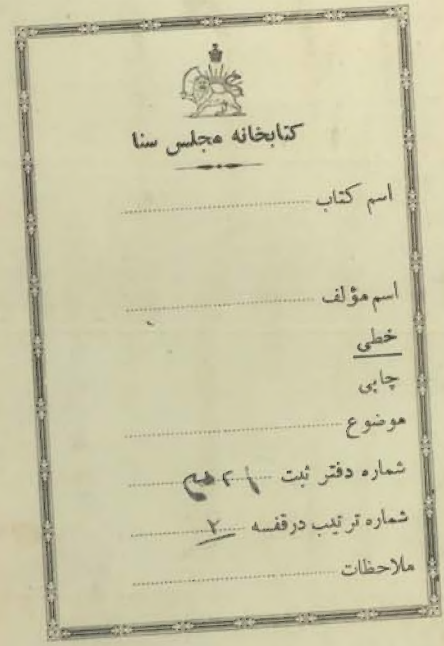 کتابخانه مجلس سنا
اسم کتاب
اسم مؤلف
خطی
چاپی
موضوع
شماره دفتر ثبت
شماره ترتیب در قفسه ۲
ملاحظات